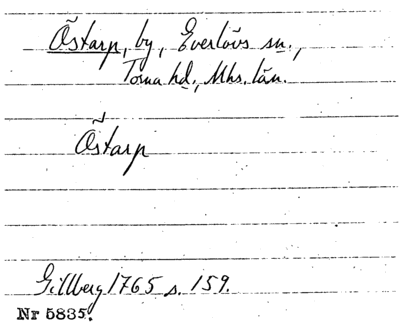 Östarp, by, Everlövs sn.,
Torna hd., Mhs. län.
Östarp
Gillberg 1765 s. 159.
Nr 5835.